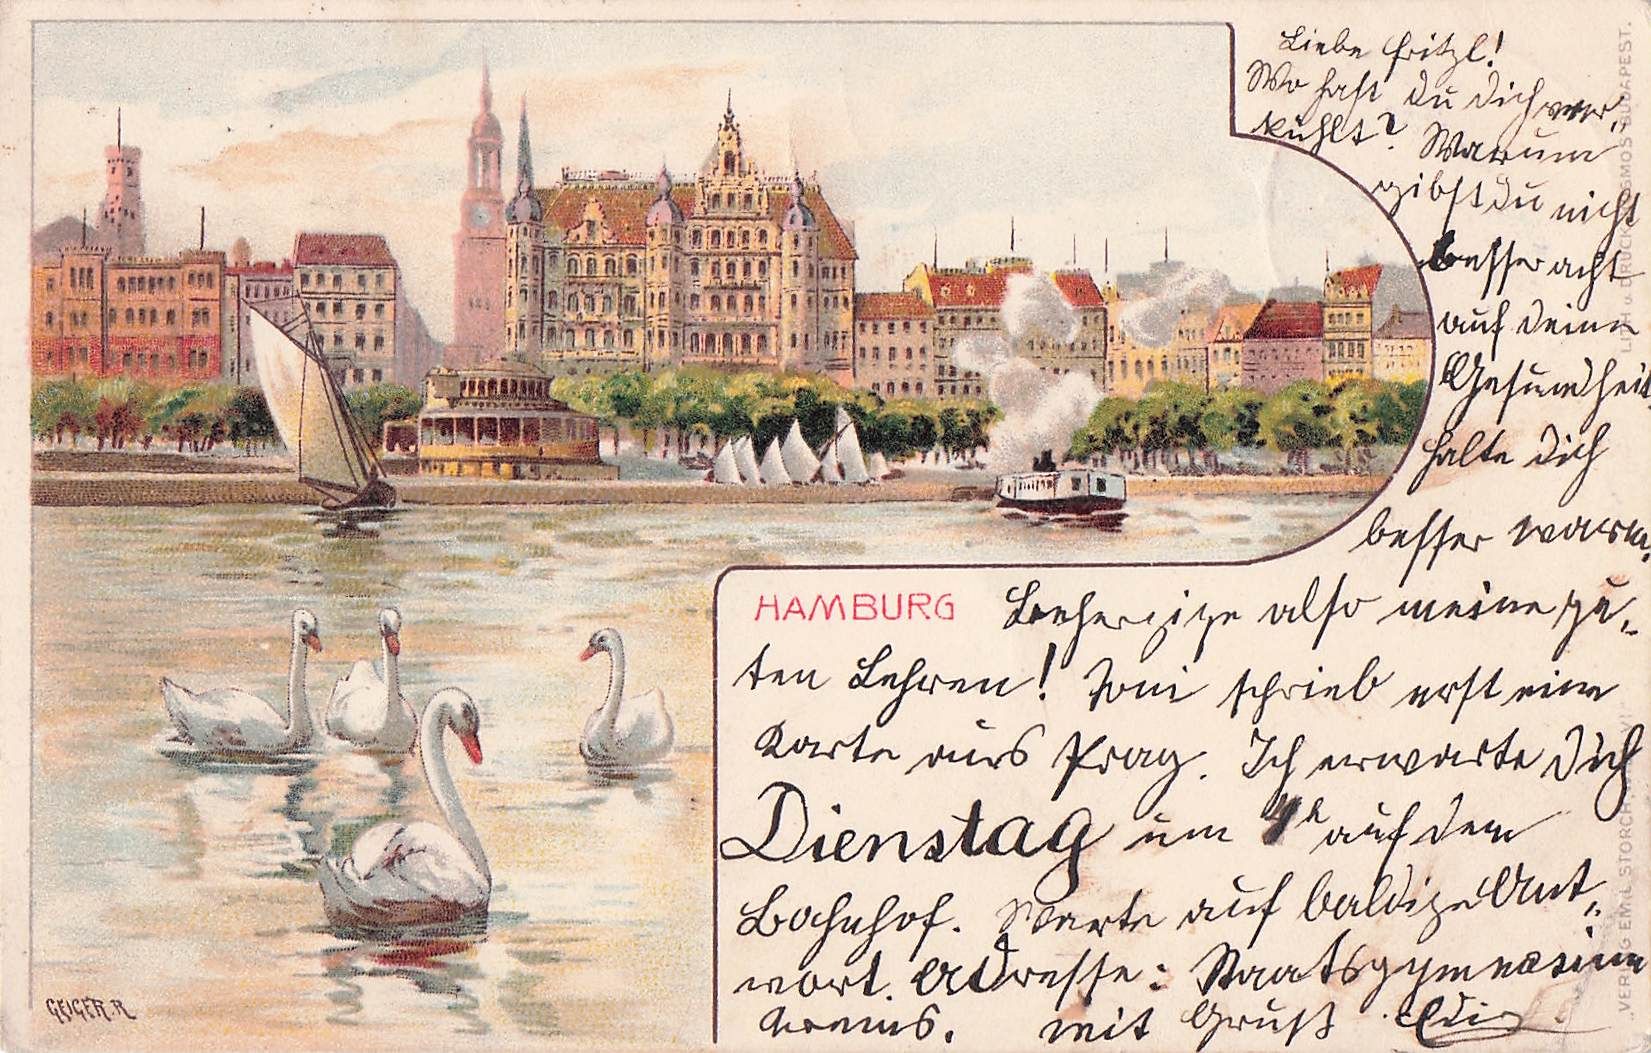 Liebe Fritzl!
Wo hast du dich ver-
kühlt? Warum
gibst du nicht
besser acht
auf deine
Gesundheit
halte dich
besser warm.
HAMBURG
Beherzige also meine gu-
ten Lehren! Toni schrieb erst eine
Karte aus Prag. Ich erwarte dich
Dienstag um 4h auf dem
Bahnhof. Warte auf baldige Ant-
wort. Adresse: Staatsgymnasium
Krems. mit Gruß
GEIGER.R
VERLAG EMIL STORCH,
LITH. u. DRUCK KOSMOS BUDAPEST.